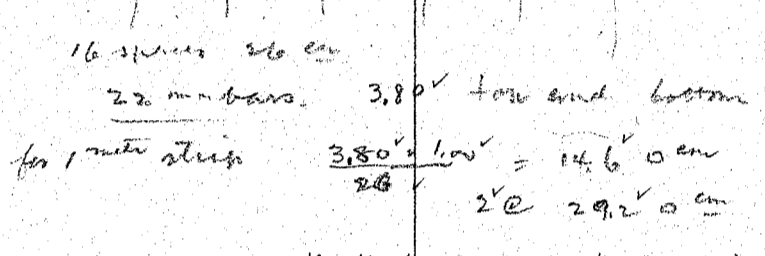 16 spaces 26 cm
22 mm bars. 3.80✓ top and bottom
for 1 meter strip 3.80✓ x 1.00✓ / 26 ✓ = 14.6✓ □ cm
2✓ @ 29.2✓ □ cm